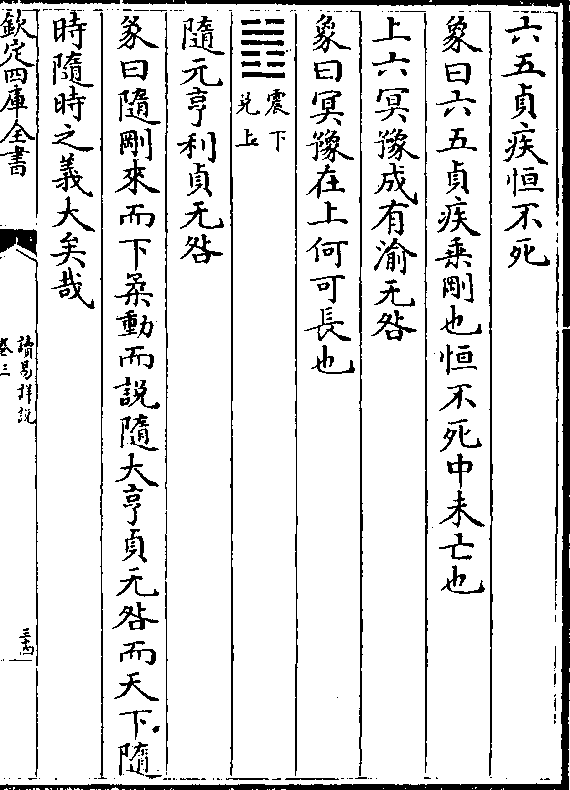 六五貞疾恒不死
象曰六五貞疾乘剛也恒不死中未亡也
上六冥豫成有渝无咎
象曰冥豫在上何可長也
震下
兌上
隨元亨利貞无咎
彖曰隨剛來而下柔動而說隨大亨貞无咎而天下隨
時隨時之義大矣哉
欽定四庫全書
讀易詳說
卷三
三十四